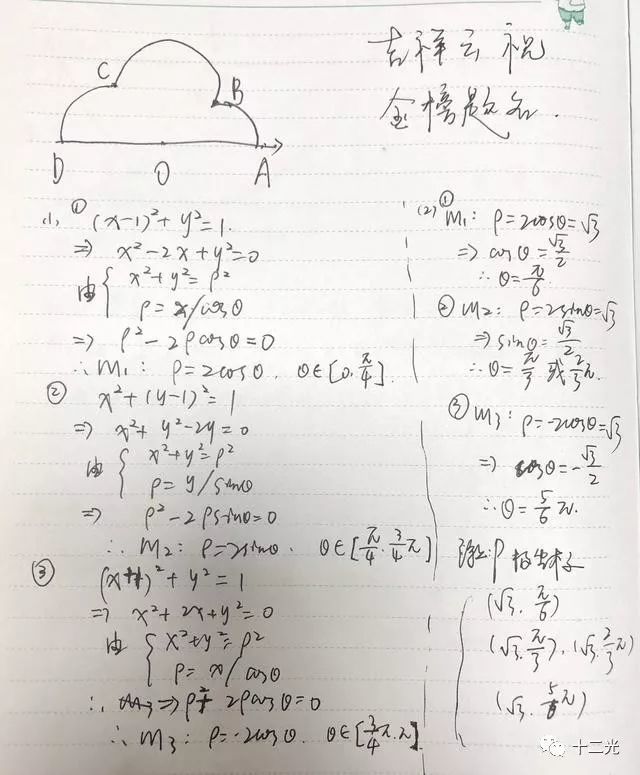 吉祥云祝
金榜题名.
C
B
D
O
A
(1) ① (x-1)²+y²=1.
⇒ x²-2x+y²=0
由{ x²+y²=ρ²
ρ=x/cosθ
⇒ ρ²-2ρcosθ=0
∴ M₁: ρ=2cosθ. θ∈[0,π/4].
② x²+(y-1)²=1
⇒ x²+y²-2y=0
由{ x²+y²=ρ²
ρ=y/sinθ
⇒ ρ²-2ρsinθ=0
∴ M₂: ρ=2sinθ. θ∈[π/4,3/4π]
③ (x+1)²+y²=1
⇒ x²+2x+y²=0
由{ x²+y²=ρ²
ρ=x/cosθ
∴ ⇒ρ²+2ρcosθ=0
∴ M₃: ρ=-2cosθ. θ∈[3/4π,π]
(2) ① M₁: ρ=2cosθ=√3
⇒ cosθ=√3/2
∴ θ=π/6.
② M₂: ρ=2sinθ=√3
⇒ sinθ=√3/2
∴ θ=π/3 或 2/3π.
③ M₃: ρ=-2cosθ=√3
⇒ cosθ=-√3/2
∴ θ=5/6π.
P极坐标
(√3,π/6)
(√3,π/3),(√3,2/3π)
(√3,5/6π)
十二光